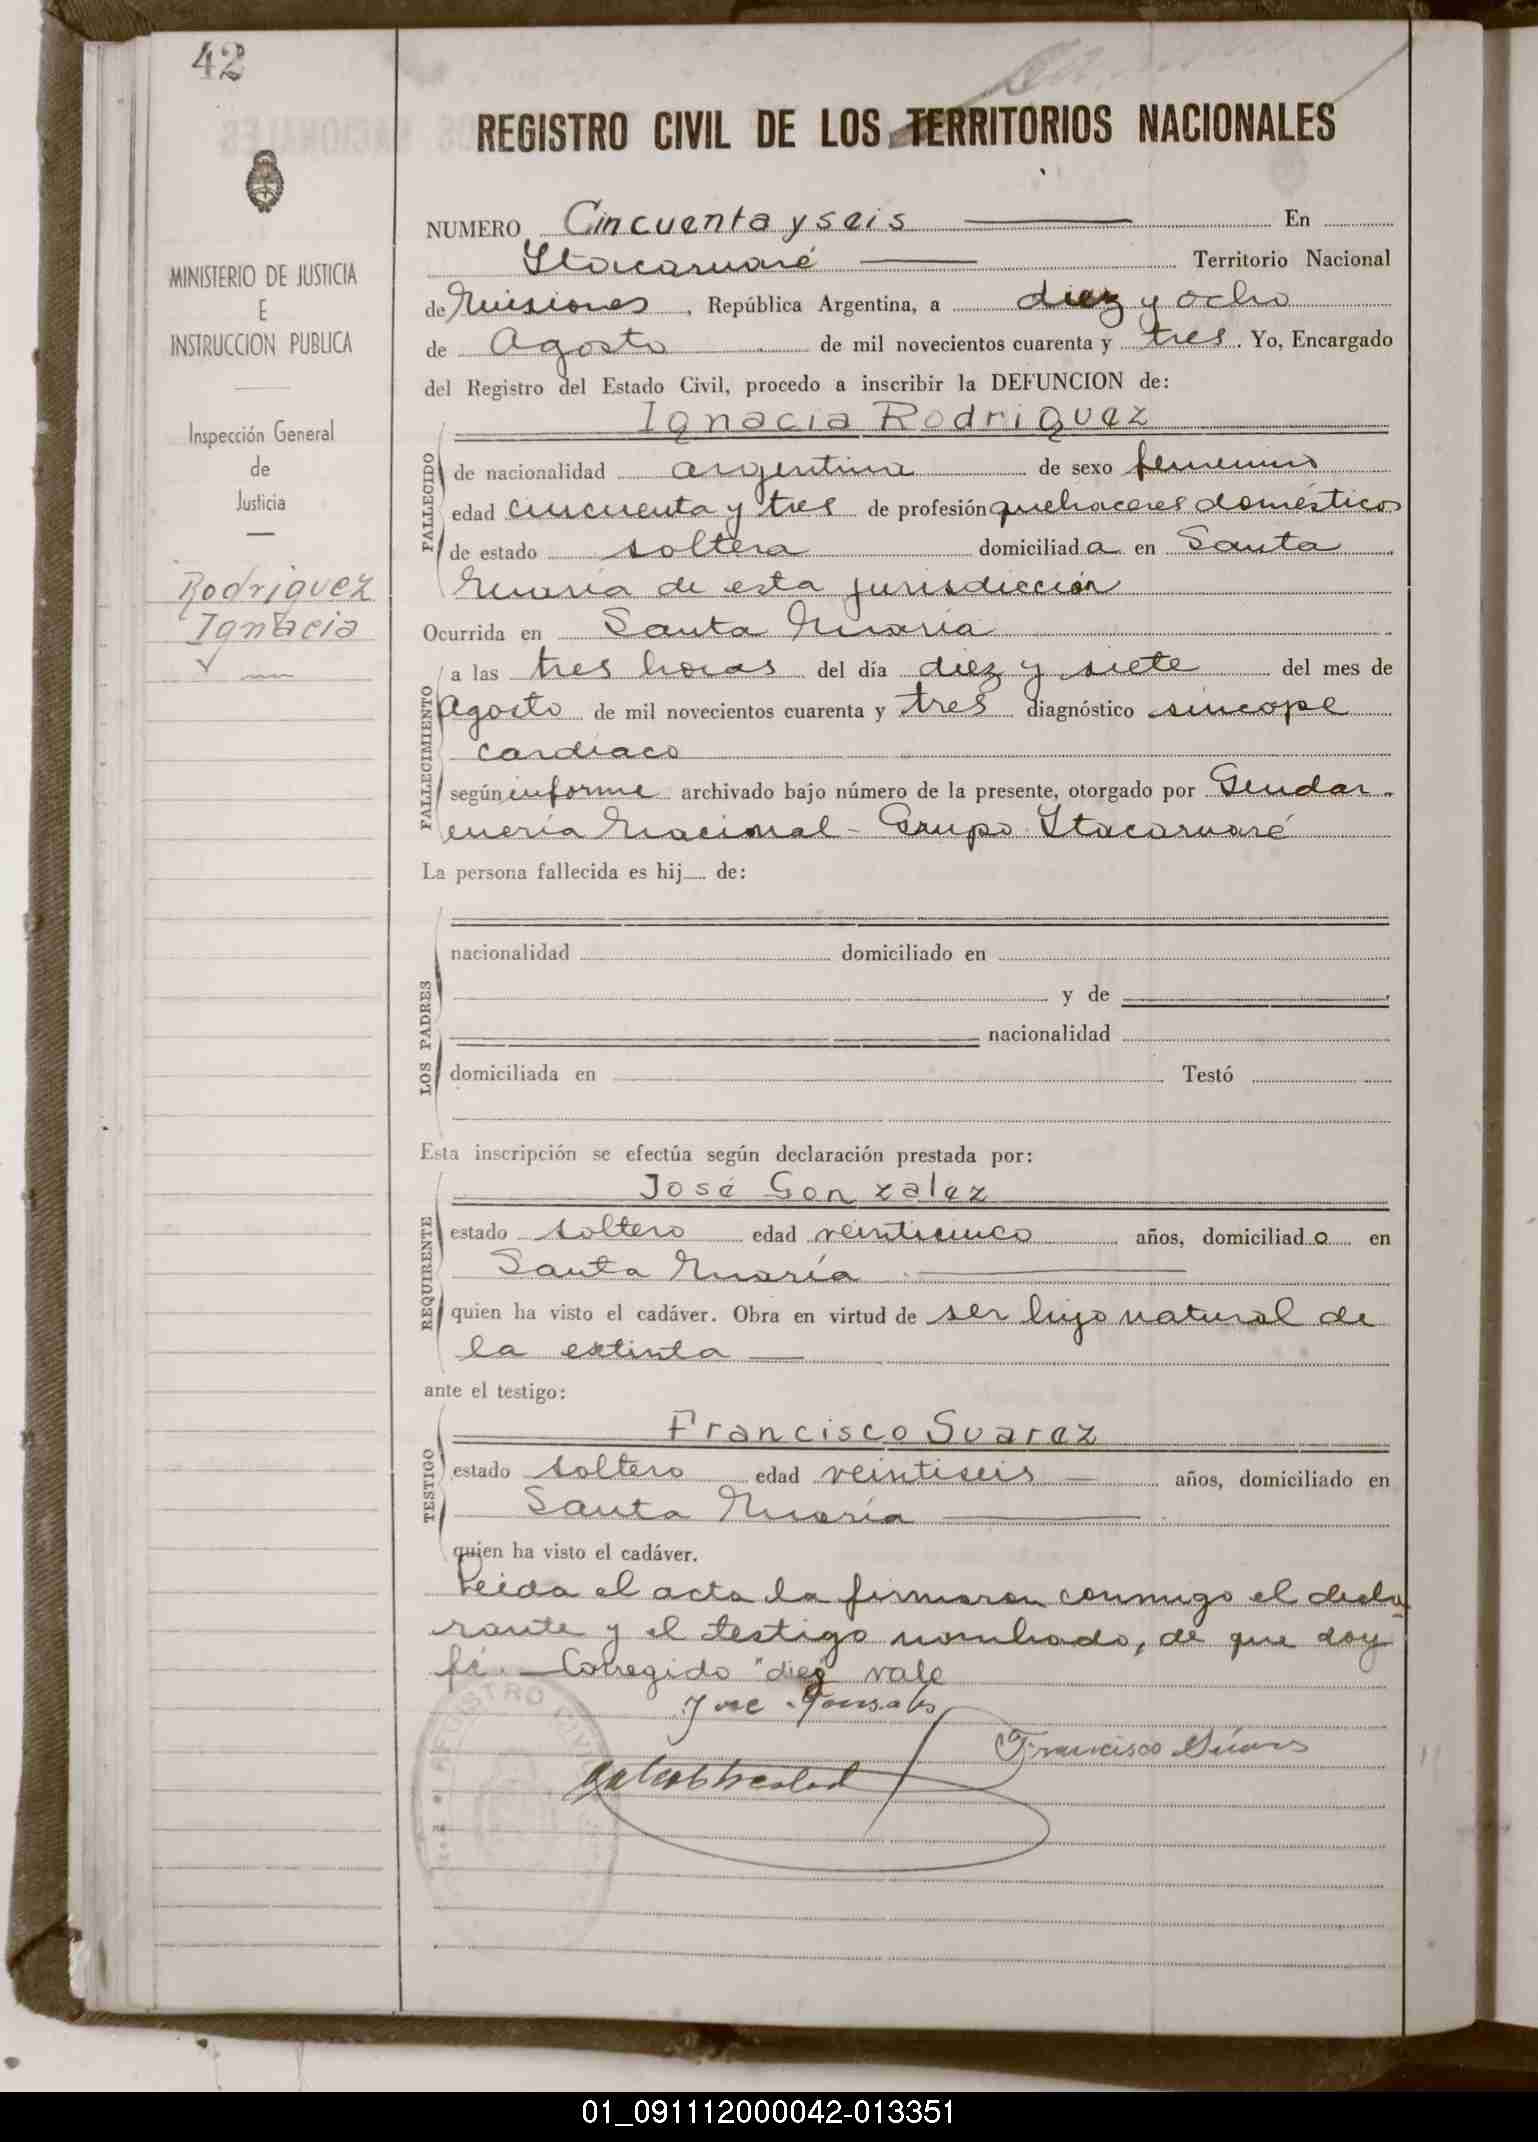 42
REGISTRO CIVIL DE LOS TERRITORIOS NACIONALES
MINISTERIO DE JUSTICIA
E
INSTRUCCION PUBLICA
Inspección General
de
Justicia
Rodriguez
Ignacia
NUMERO Cincuenta y seis En
Itacaruaré Territorio Nacional
de Misiones, República Argentina, a diez y ocho
de Agosto de mil novecientos cuarenta y tres. Yo, Encargado
del Registro del Estado Civil, procedo a inscribir la DEFUNCION de:
Ignacia Rodriguez
FALLECIDO
de nacionalidad argentina de sexo femenino
edad cincuenta y tres de profesión quehaceres domésticos
de estado soltera domiciliada en Santa
María de esta jurisdicción
Ocurrida en Santa María
FALLECIMIENTO
a las tres horas del día diez y siete del mes de
Agosto de mil novecientos cuarenta y tres diagnóstico sincope
cardíaco
según informe archivado bajo número de la presente, otorgado por Gendar-
mería Nacional - Grupo Itacaruaré
La persona fallecida es hij de:
LOS PADRES
nacionalidad domiciliado en
y de
nacionalidad
domiciliada en Testó
Esta inscripción se efectúa según declaración prestada por:
José Gonzalez
REQUIRENTE
estado soltero edad veinticinco años, domiciliado en
Santa María
quien ha visto el cadáver. Obra en virtud de ser hijo natural de
la extinta
ante el testigo:
Francisco Suarez
TESTIGO
estado soltero edad veintiseis años, domiciliado en
Santa María
quien ha visto el cadáver.
Leida el acta la firmaron conmigo el decla
rante y el testigo nombrado, de que doy
fé. - Corregido "diez" vale
Jose Gonsales
Francisco Súares
REGISTRO CIVIL
01_091112000042-013351